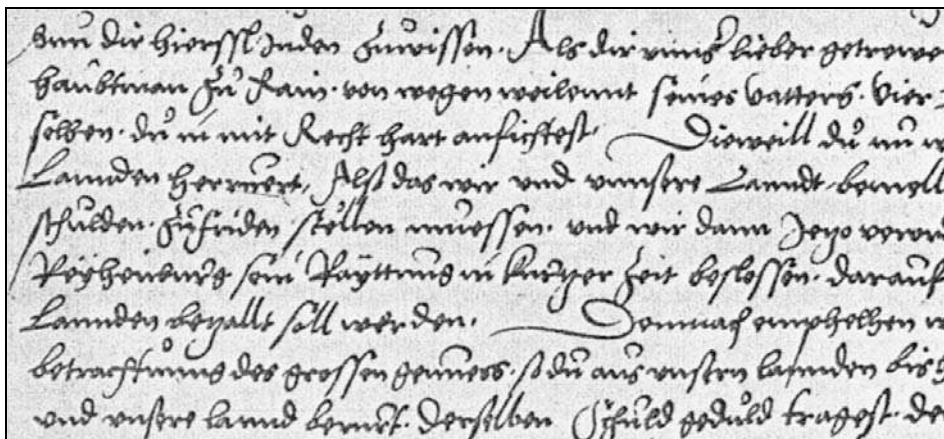 dir hierssl Juden zuwissen. Als dir unns lieber getrewe
haubtman zu Rain. von wegen weilennt seines vatters. vier
selben. du in mit Recht hart anfichtest. Dieweill du nu
Lannden herruert, Alss das wir und unnsere Lanndt
schulden. zufriden stellen muessen. und wir dann Jezo
Reyhenburg sein Rayttung in kurtzer zeit beslossen. darauf
Lannden bezallt soll werden. Demnach emphelhen
betrachttung des grossen genuess. so du aus unsern lannden bis
und unsere lannd berurt. derselben schuld geduld tragest.